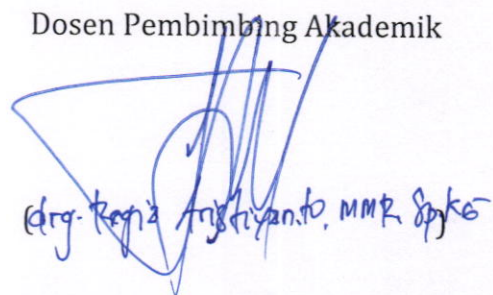 Dosen Pembimbing Akademik
(drg. Regia Aristiyanto, MMR, SpKG)